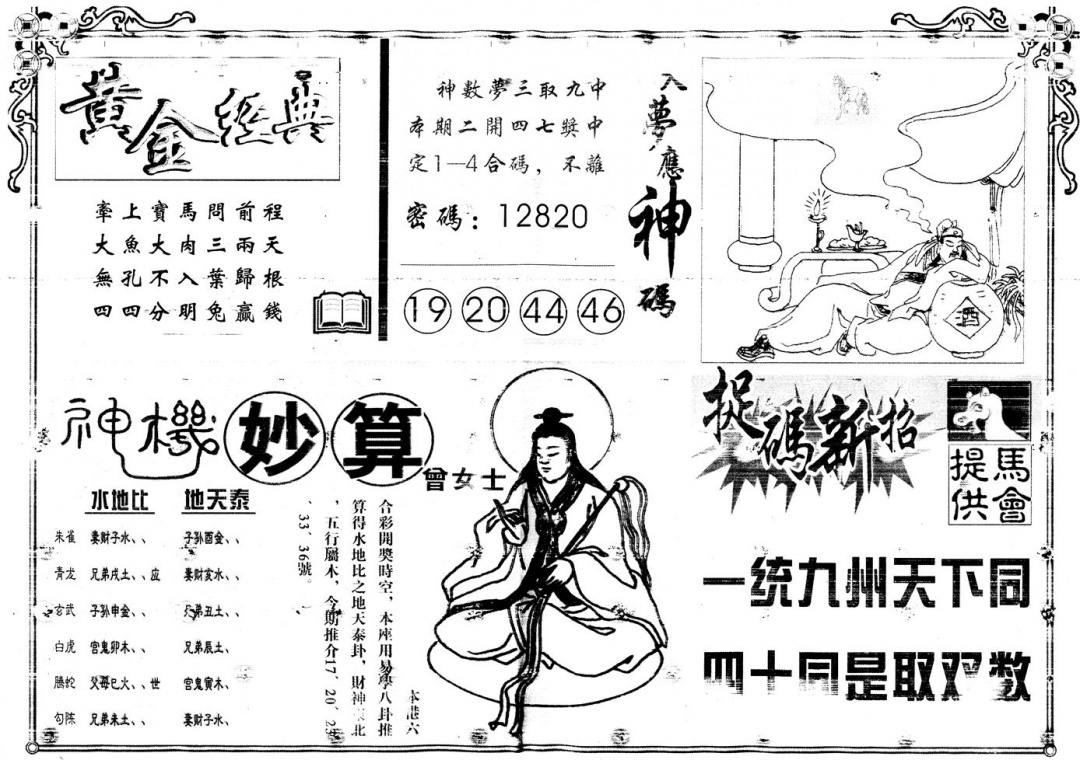 黄金經典
牽上寶馬問前程
大魚大肉三兩天
無孔不入葉歸根
四四分明兔贏錢
神數夢三取九中
本期二開四七獎中
定1—4合碼，不離
密碼：12820
19 20 44 46
入夢應神碼
酒
神機妙算
曾女士
水地比 地天泰
朱雀 妻财子水、、 子孙酉金、、
青龙 兄弟戌土、、应 妻财亥水、、
玄武 子孙申金、、 兄弟丑土、、
白虎 官鬼卯木、、 兄弟辰土、
腾蛇 父母巳火、、世 官鬼寅木、
勾陈 兄弟未土、、 妻财子水、
本港六
合彩開獎時空，本座用易學八卦推
算得水地比之地天泰卦，財神 北
，五行屬木，今期推介17、20、25
、33、36號。
捉碼新招
馬會提供
一统九州天下同
四十同是取双数